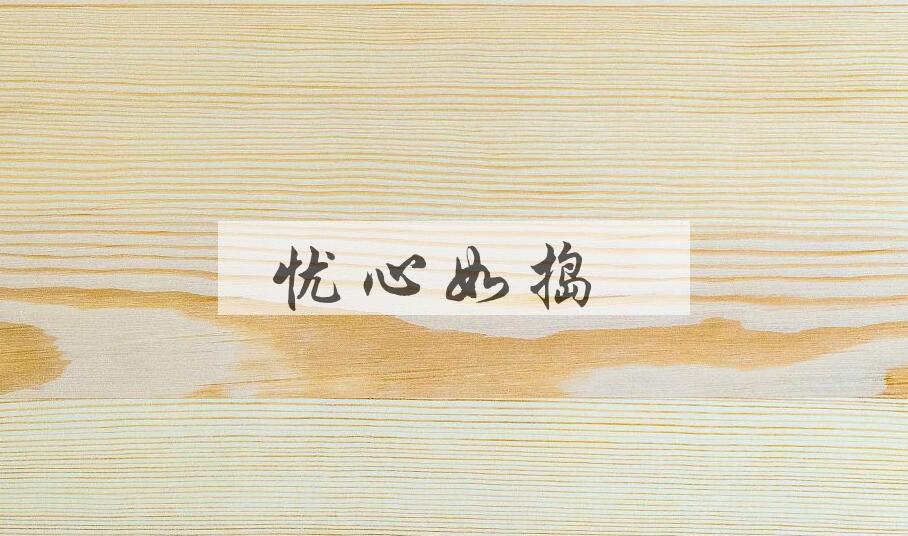 忧心如捣